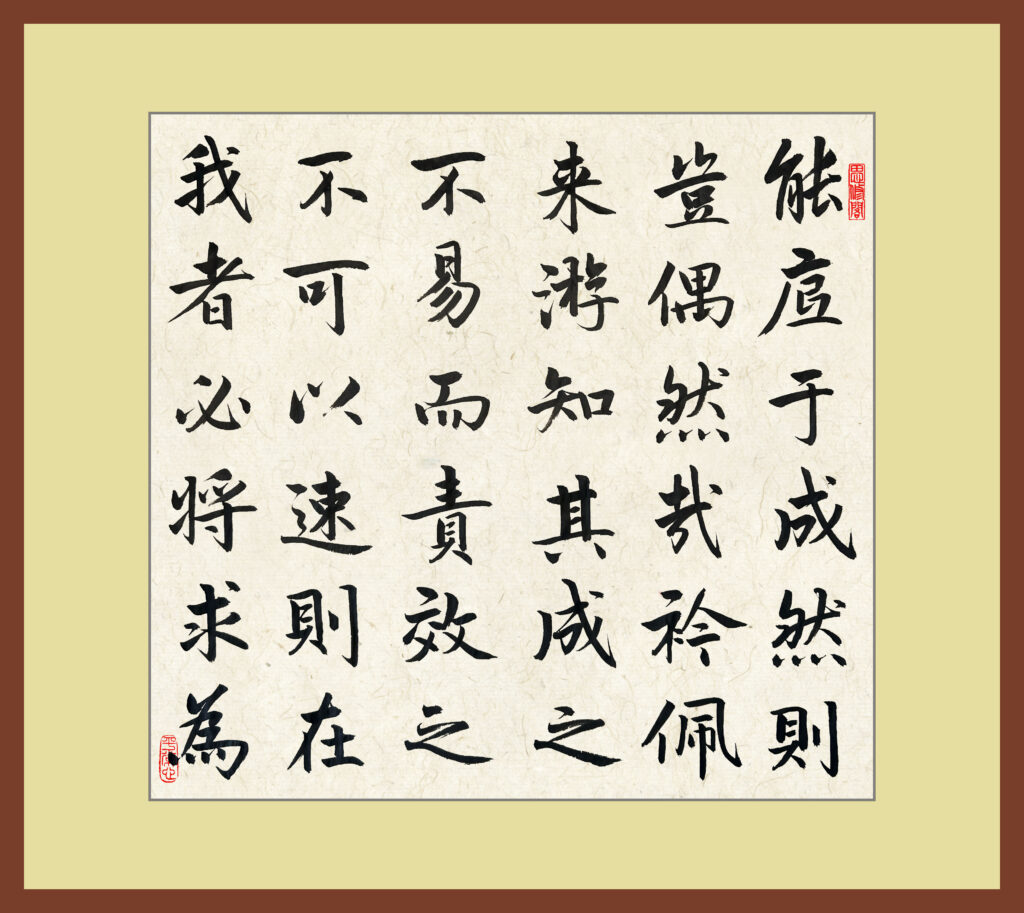 思修閣
能底于成然則
豈偶然哉衿佩
来游知其成之
不易而責效之
不可以速則在
我者必将求為